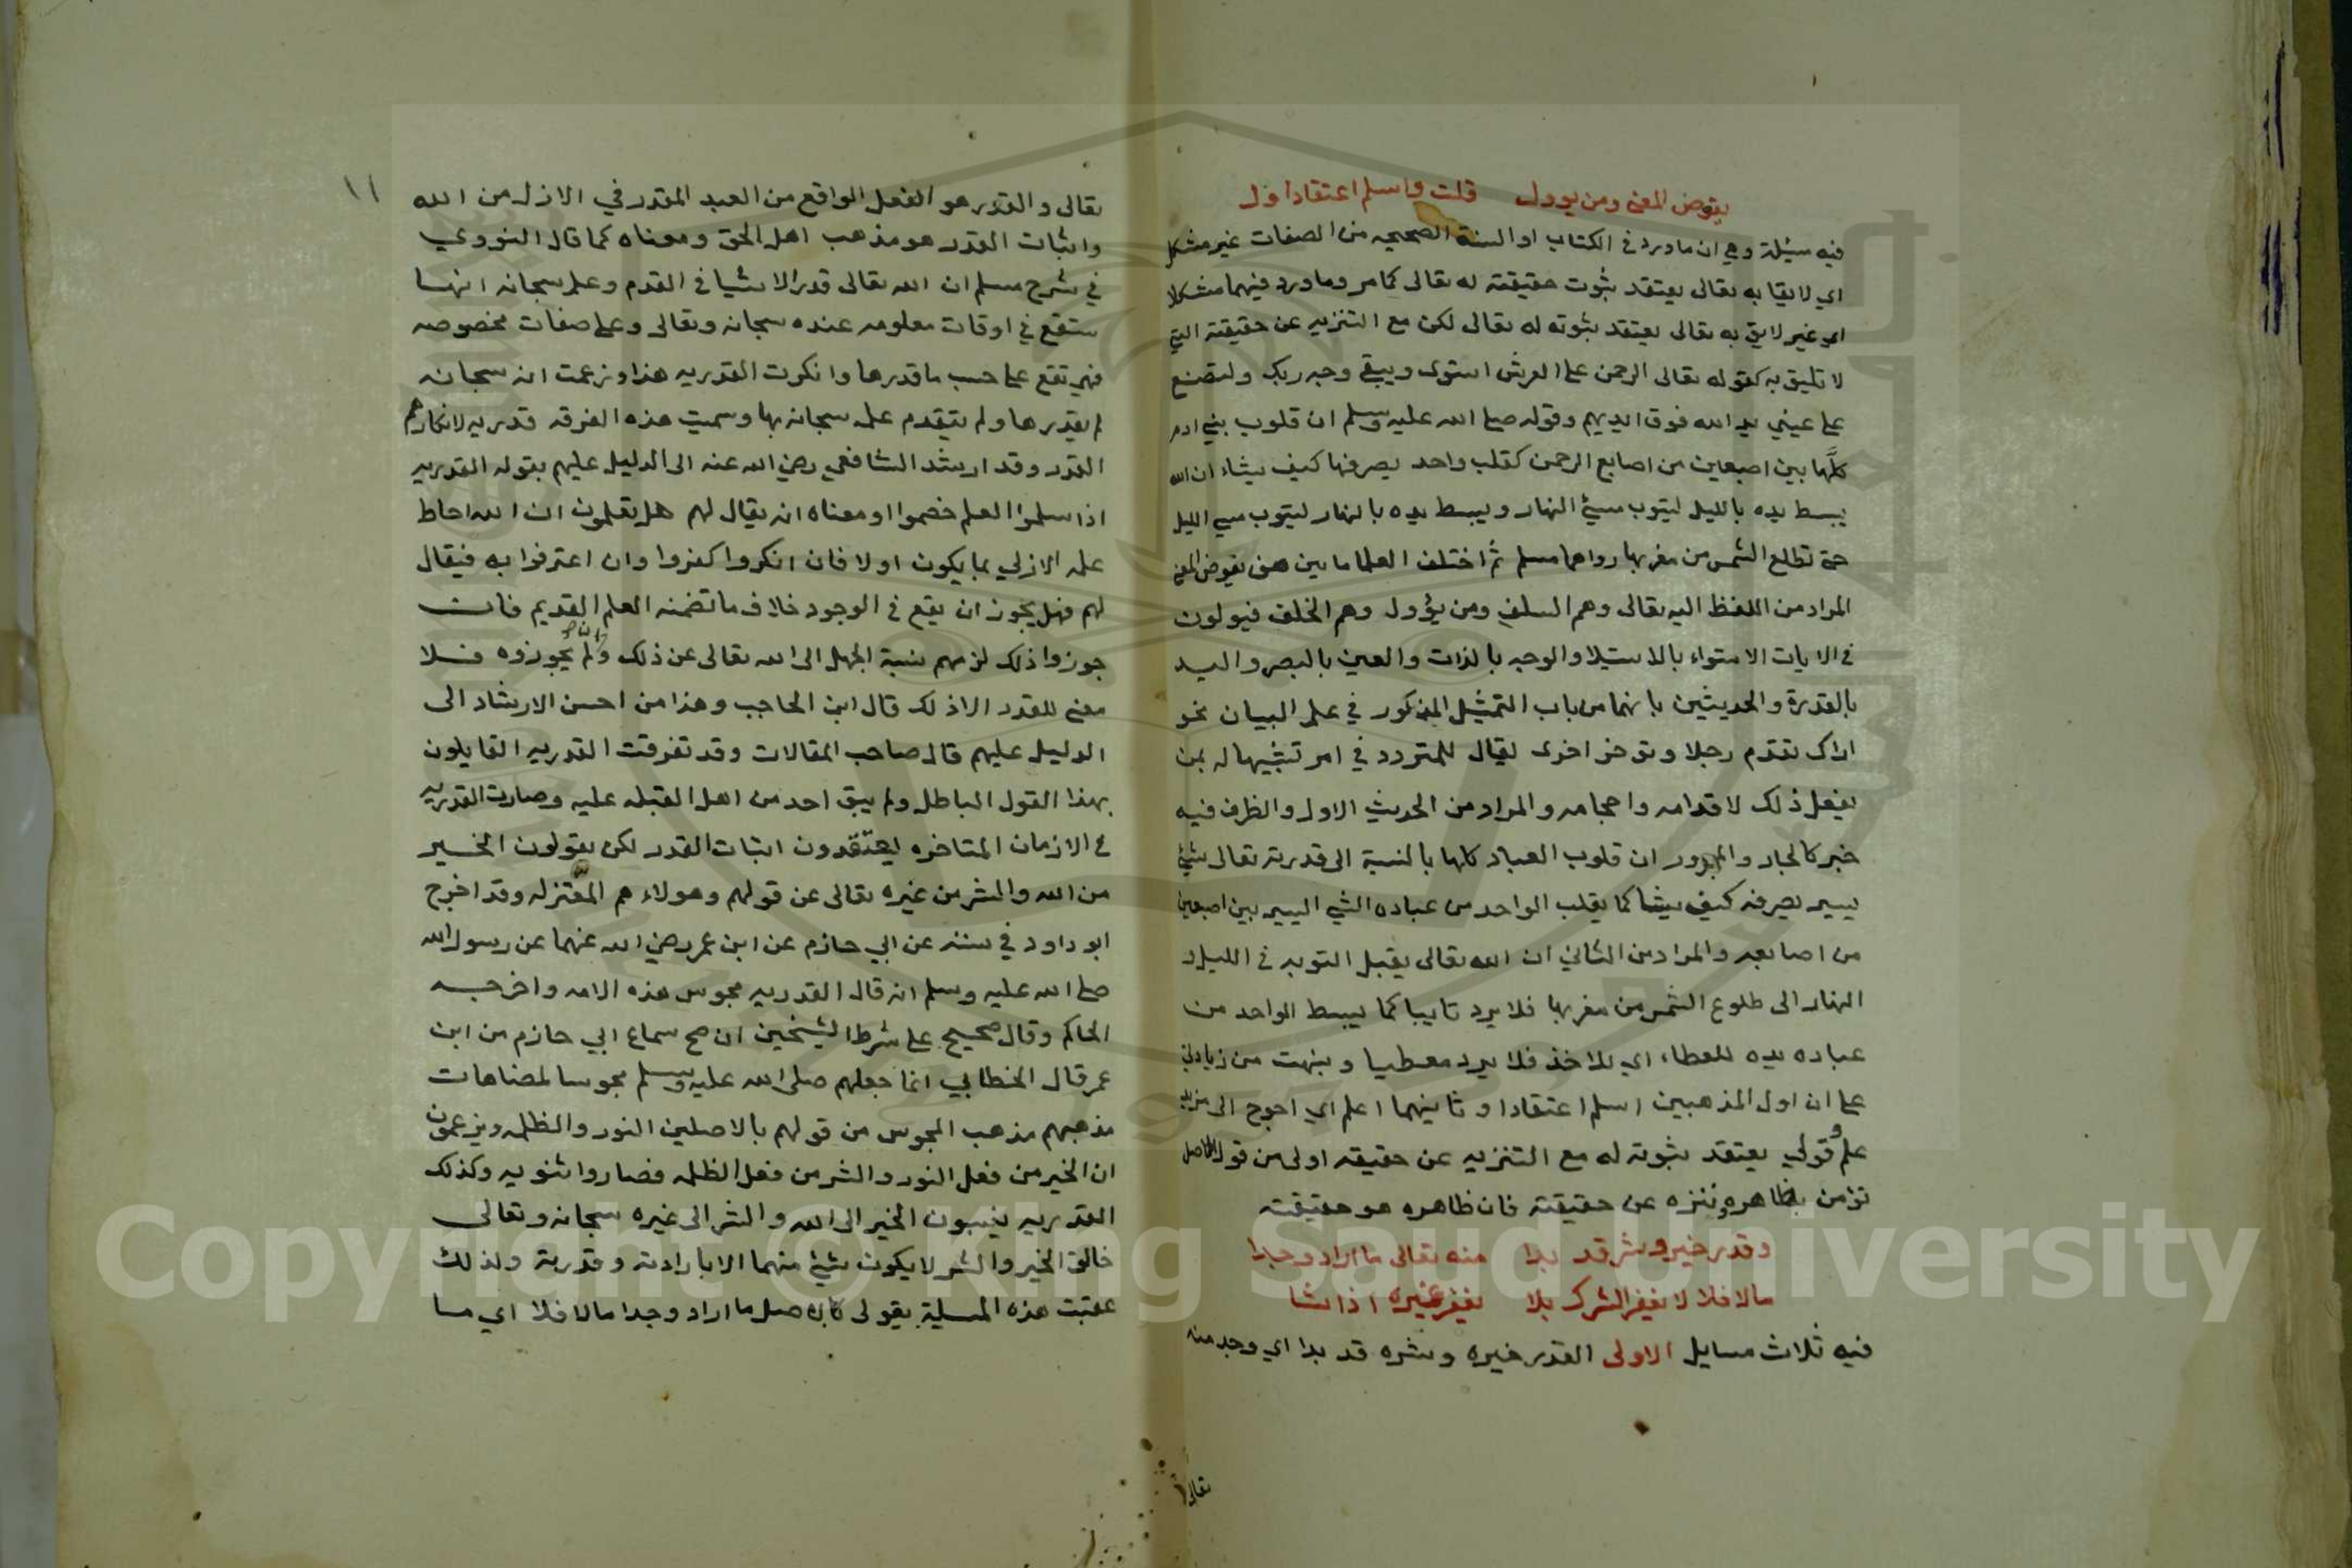 يفوض المعنى ومن يوول قلت واسلم اعتقادا ول
فيه مسئلة وهي ان ما ورد في الكتاب او السنة الصحيحه من الصفات غير مشكل
اي لايقا به تعالى يعتقد ثبوت حقيقته له تعالى كما مر وما ورد فيهما مشكلا
اي غير لايق به تعالى يعتقد ثبوته له تعالى لكن مع التنزيه عن حقيقته التي
لا تليق به كقوله تعالى الرحمن على العرش استوى ويبقى وجه ربك ولتصنع
على عيني يد الله فوق ايديهم وقوله صلى الله عليه وسلم ان قلوب بني ادم
كلَّها بين اصبعين من اصابع الرحمن كقلب واحد يصرفها كيف يشاء ان الله
يبسط يده بالليل ليتوب مسيئ النهار ويبسط يده بالنهار ليتوب مسي الليل
حتى تطلع الشمس من مغربها رواهما مسلم ثم اختلف العلما ما بين من يفوض المعنى
المراد من اللفظ اليه تعالى وهم السلف ومن يؤول وهم الخلف فيولون
في الايات الاستواء بالاستيلا والوجه بالذات والعين بالبصر واليد
بالقدرة والحديثين بانهما من باب التمثيل المذكور في علم البيان نحو
اراك تقدم رجلا وتوخر اخرى يقال للمتردد في امر تشبيها له بمن
يفعل ذلك لاقدامه واحجامه والمراد من الحديث الاول والظرف فيه
خبر كالجار والمجرور ان قلوب العباد كلها بالنسبة الى قدرته تعالى شيئ
يسير يصرفه كيف يشا كما يقلب الواحد من عباده الشي اليسير بين اصبعين
من اصابعه والمراد من الثاني ان الله تعالى يقبل التوبه في الليل و
النهار الى طلوع الشمس من مغربها فلا يرد تايبا كما يبسط الواحد من
عباده يده للعطاء اي للاخذ فلا يرد معطيا ونبهت من زيادتي
على ان اول المذهبين اسلم اعتقادا وثانيهما اعلم اي احوج الى مزيد
علم وقولي يعتقد ثبوته له مع التنزيه عن حقيقته اولى من قول الاصل
نؤمن بظاهره وننزه عن حقيقته فان ظاهره هو حقيقته
وقدر خير وشر قد بدا منه تعالى ما اراد وجدا
مالا فلا لا يغفر الشرك بلا يغفر غيره اذا شا
فيه ثلاث مسايل الاولى القدر خيره وشره قد بدا اي وجد منه
تعالى
١١
تعالى والقدر هو الفعل الواقع من العبد المقدر في الازل من الله
واثبات القدر هو مذهب اهل الحق ومعناه كما قال النووي
في شرح مسلم ان الله تعالى قدر الاشيا في القدم وعلم سبحانه انها
ستقع في اوقات معلومه عنده سبحانه وتعالى وعلى صفات مخصوصه
فهي تقع على حسب ما قدرها وانكرت القدريه هذا وزعمت انه سبحانه
لم يقدرها ولم يتقدم علمه سبحانه بها وسميت هذه الفرقه قدريه لانكارهم
القدر وقد ارشد الشافعي رضي الله عنه الى الدليل عليهم بقوله القدريه
اذا سلموا العلم خصموا او معناه انه يقال لهم هل تعلمون ان الله احاط
علمه الازلي بما يكون اولا فان انكروا كفروا وان اعترفوا به فيقال
لهم فهل يجوز ان يقع في الوجود خلاف ما تضمنه العلم القديم فان
جوزوا ذلك لزمهم نسبة الجهل الى الله تعالى عن ذلك وان لم يجوزوه فلا
معنى للقدر الا ذلك قال ابن الحاجب وهذا من احسن الارشاد الى
الدليل عليهم قال صاحب المقالات وقد تفرقت القدريه القايلون
بهذا القول الباطل ولم يبق احد من اهل القبله عليه وصارت القدريه
في الازمان المتاخره يعتقدون اثبات القدر لكن يقولون الخير
من الله والشر من غيره تعالى عن قولهم وهولاء هم المعتزله وقد اخرج
ابو داود في سننه عن ابي حازم عن ابن عمر رضي الله عنهما عن رسول الله
صلى الله عليه وسلم انه قال القدريه مجوس هذه الامه واخرجه
الحاكم وقال صحيح على شرط الشيخين ان صح سماع ابي حازم من ابن
عمر قال الخطابي انما جعلهم صلى الله عليه وسلم مجوسا لمضاهات
مذهبهم مذهب المجوس من قولهم بالاصلين النور والظلمه ويزعمون
ان الخير من فعل النور والشر من فعل الظلمه فصاروا ثنويه وكذلك
القدريه ينسبون الخير الى الله والشر الى غيره سبحانه وتعالى
خالق الخير والشر لا يكون شيئ منهما الا بارادته وقدرته ولذلك
عقبت هذه المسيلة بقولي كالاصل ما اراد وجدا مالا فلا اي ما
Copyright © King Saud University